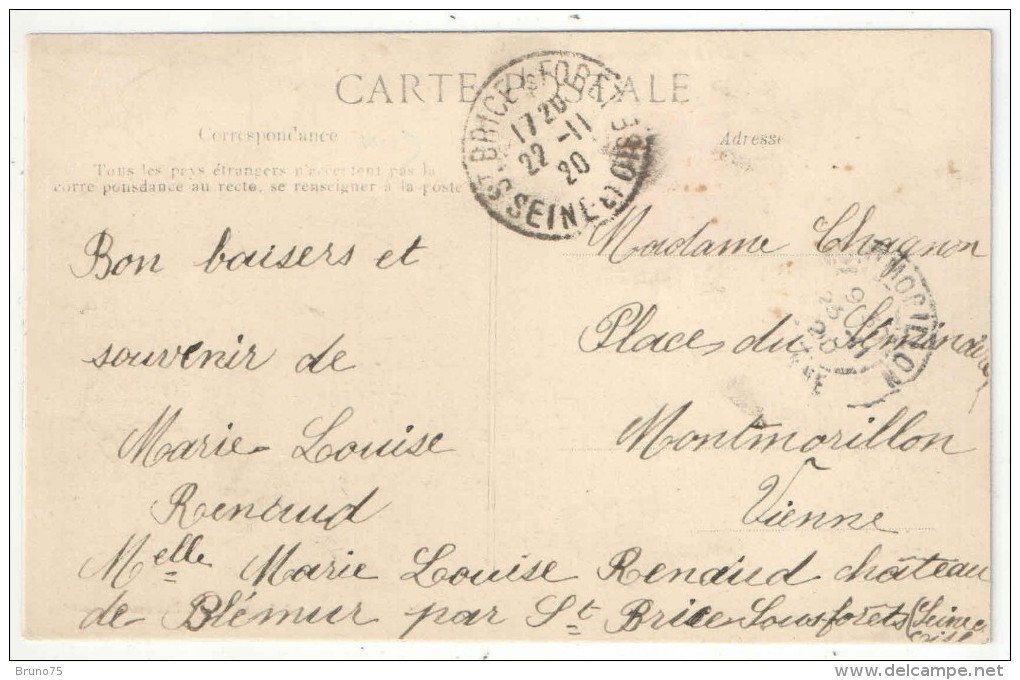 CARTE POSTALE
Correspondance
Tous les pays étrangers n'acceptent pas la
corre ponsdance au recto, se renseigner à la poste
Adresse
ST BRICE Ss FORET
17 20
22 -11
20
SEINE ET OISE
Bon baisers et
souvenir de
Marie Louise
Renaud
Madame Chagnon
Place du Séminaire
Montmorillon
Vienne
Melle Marie Louise Renaud château
de Blémur par St Brice Sous forets (Seine et
oise
Bruno75
www.delcampe.net